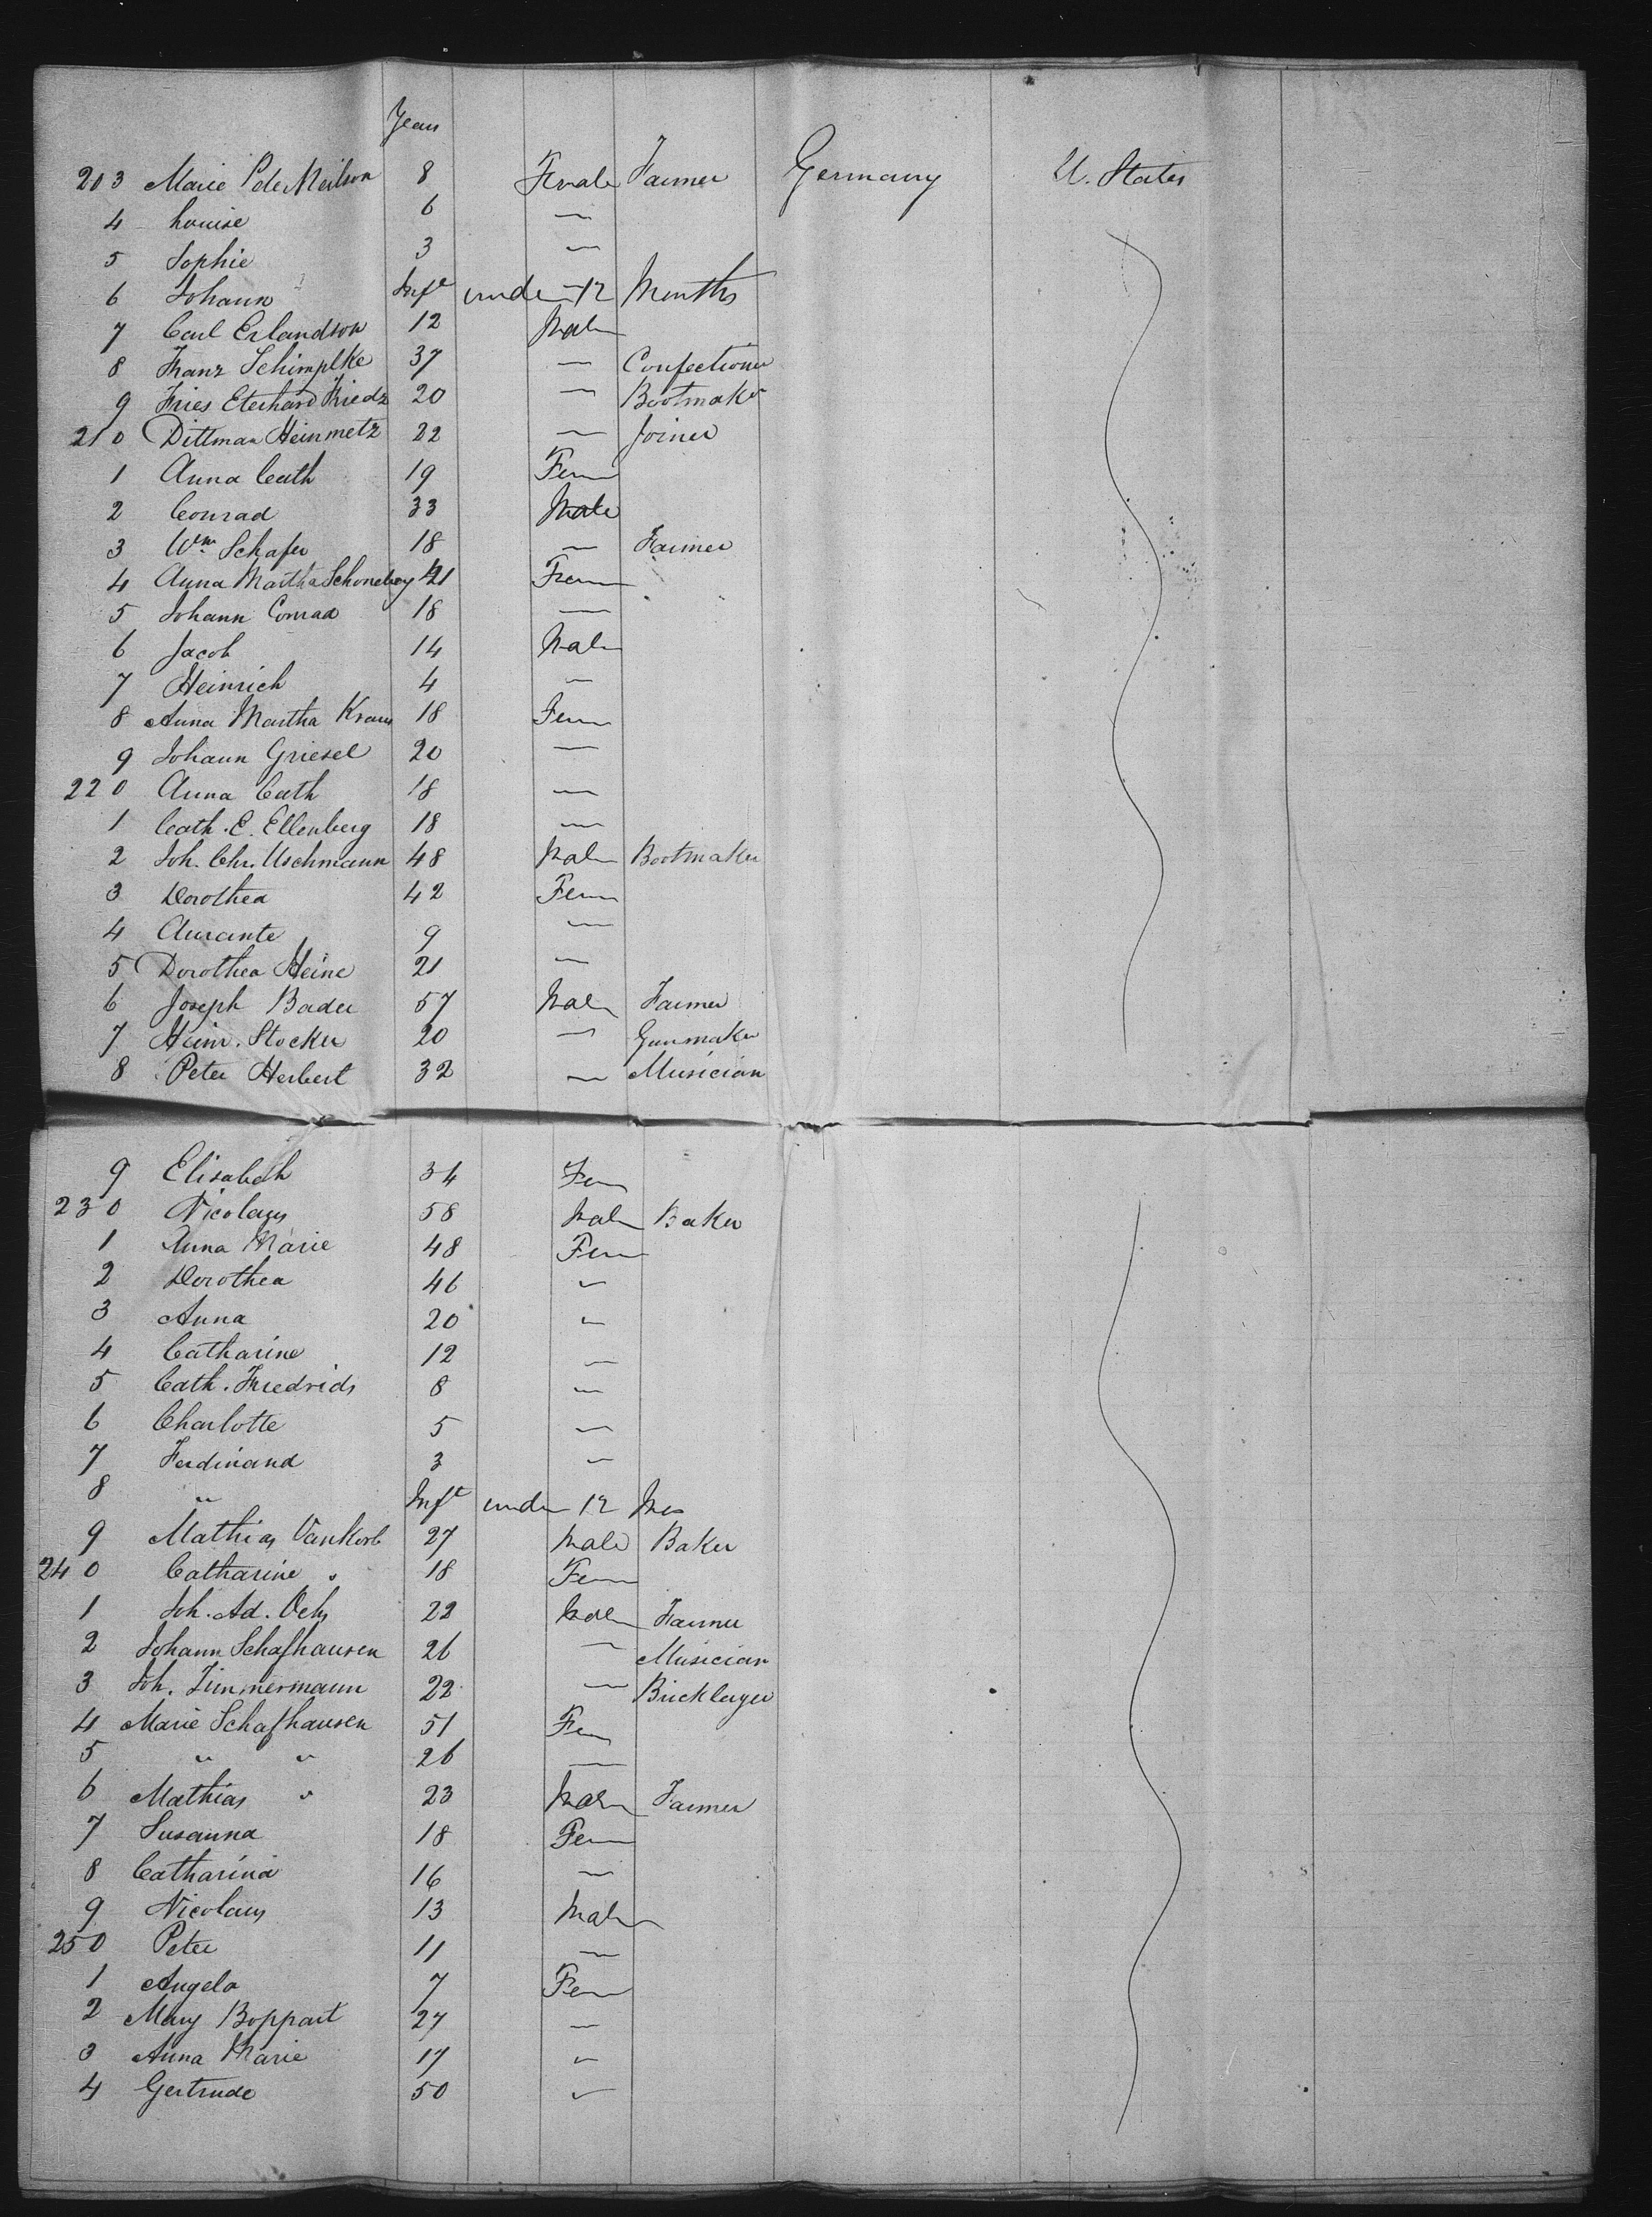 Years
203 Marie Peter Neilson 8 Female Farmer Germany U. States
4 Louise 6 —
5 Sophie 3 —
6 Johann Inft under 12 Months
7 Carl Erlandson 12 Male
8 Franz Schimplke 37 — Confectioner
9 Fries Eterhard Friedr 20 — Bootmaker
210 Dittmar Heinmetz 22 — Joiner
1 Anna Cath 19 Fem
2 Conrad 33 Male
3 Wm Schafer 18 — Farmer
4 Anna Martha Schoneberg 21 Fem
5 Johann Conrad 18 —
6 Jacob 14 Male
7 Heinrich 4 —
8 Anna Martha Kraus 18 Fem
9 Johann Griesel 20 —
220 Anna Cath 18 —
1 Cath. E. Ellenberg 18 —
2 Joh. Chr. Uschmann 48 Male Bootmaker
3 Dorothea 42 Fem
4 Aurante 9 —
5 Dorothea Heine 21 —
6 Joseph Bader 57 Male Farmer
7 Heinr. Stocker 20 — Gunmaker
8 Peter Herbert 32 — Musician
9 Elisabeth 34 Fem
230 Nicolaus 58 Male Baker
1 Anna Marie 48 Fem
2 Dorothea 46 "
3 Anna 20 "
4 Catharine 12 —
5 Cath. Friedrich 8 —
6 Charlotte 5 —
7 Ferdinand 3 "
8 " Inft under 12 Mos
9 Mathias Vankorb 27 Male Baker
240 Catharine " 18 Fem
1 Joh. Ad. 22 Male Farmer
2 Johann Schafhausen 26 — Musician
3 Joh. Zimmermann 22 — Bricklayer
4 Marie Schafhausen 51 Fem
5 " " 26 —
6 Mathias " 23 Male Farmer
7 Susanna 18 Fem
8 Catharina 16 —
9 Nicolaus 13 Male
250 Peter 11 —
1 Angela 7 Fem
2 Mary Boppart 27 —
3 Anna Marie 17 "
4 Gertrude 50 "